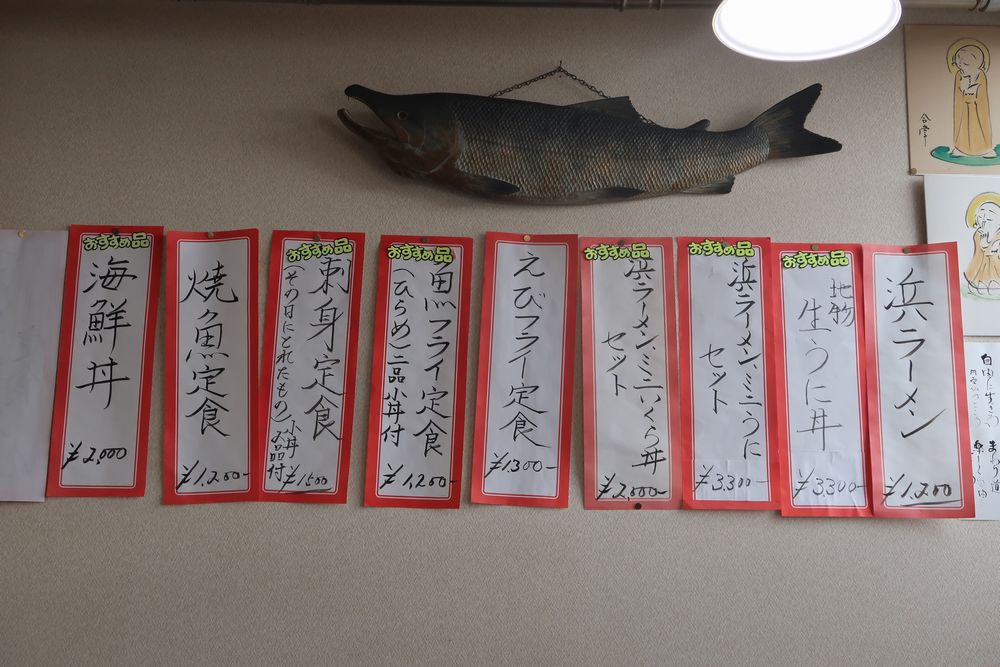 浜ラーメン
¥1,200
おすすめ品
地物
生うに丼
¥3,300-
おすすめ品
浜ラーメン、ミニうに
セット
¥3,300-
おすすめ品
浜ラーメン、ミニいくら丼
セット
¥2,000-
えびフライ定食
¥1,300-
おすすめ品
魚フライ定食
(ひらめ)二品小丼付
¥1,200-
おすすめ品
刺身定食
(その日にとれたもの)小丼
品付
¥1,500
焼魚定食
¥1,200-
おすすめ品
海鮮丼
¥2,000